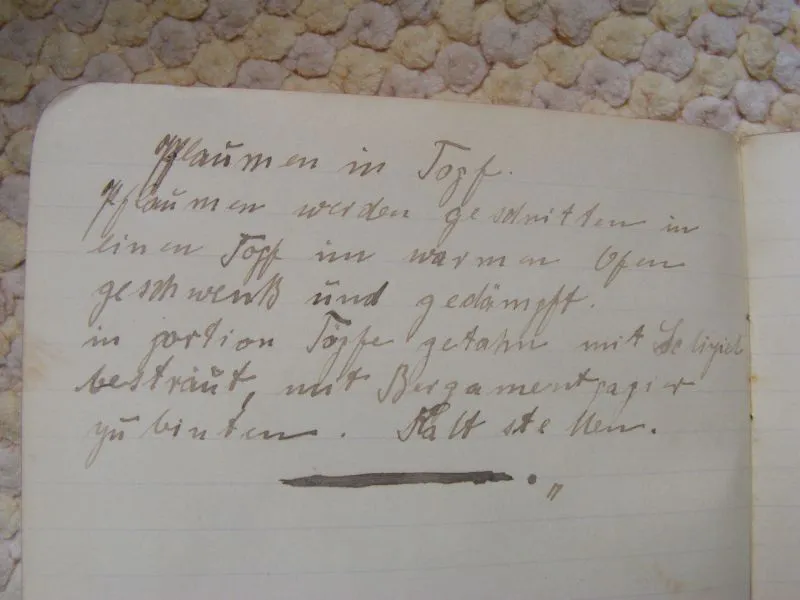 Pflaumen in Topf.
Pflaumen werden geschnitten in
einen Topf im warmen Ofen
geschwenkt und gedämpft.
in portion Töpfe getahn mit
besträut, mit Bergamentpapier
zu binten. Kalt stellen.